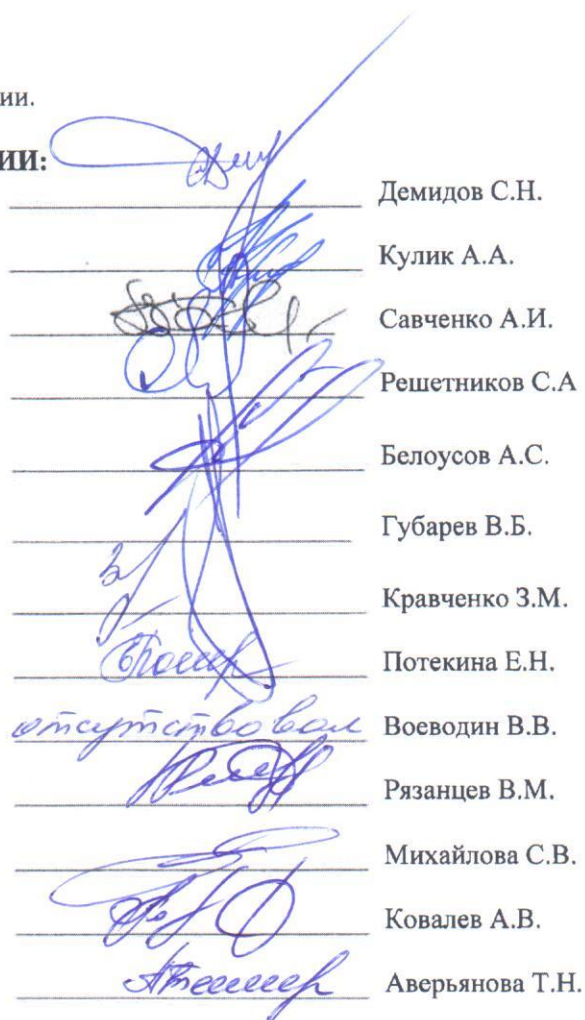 ии.
ИИ:
Демидов С.Н.
Кулик А.А.
Савченко А.И.
Решетников С.А
Белоусов А.С.
Губарев В.Б.
Кравченко З.М.
Потекина Е.Н.
отсутствовал Воеводин В.В.
Рязанцев В.М.
Михайлова С.В.
Ковалев А.В.
Аверьянова Т.Н.